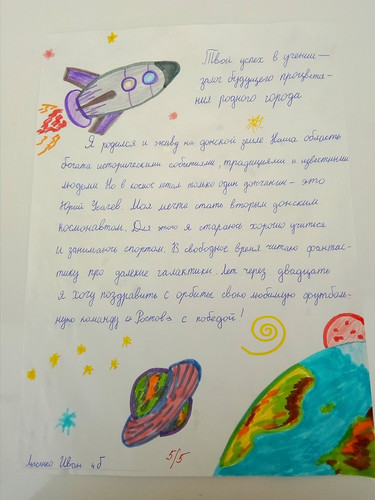 Твой успех в учении —
залог будущего процвета-
ния родного города
Я родился и живу на донской земле. Наша область
богата историческими событиями, традициями и известными
людьми. Но в космос летал только один дончанин – это
Юрий Усачев. Моя мечта стать вторым донским
космонавтом. Для этого я стараюсь хорошо учиться
и занимаюсь спортом. В свободное время читаю фантас-
тику про далекие галактики. Лет через двадцать
я хочу поздравить с орбиты свою любимую футболь-
ную команду «Ростов» с победой!
Иван 4Б
5/5